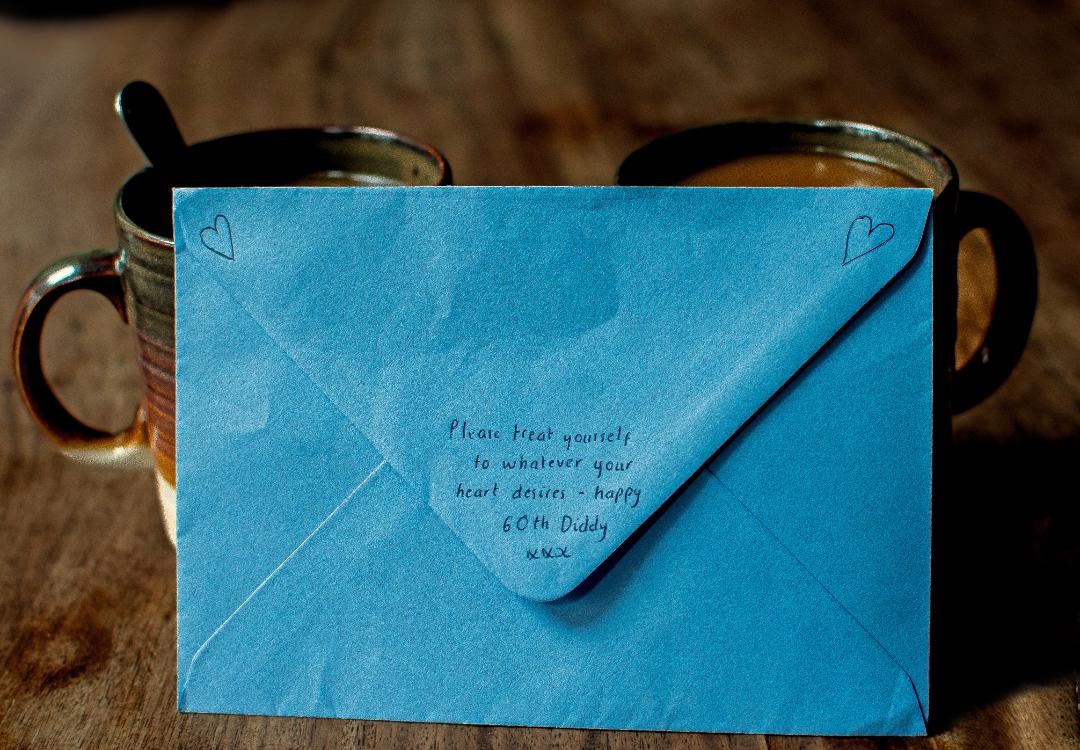 Please treat yourself
to whatever your
heart desires - happy
60th Diddy
xxx